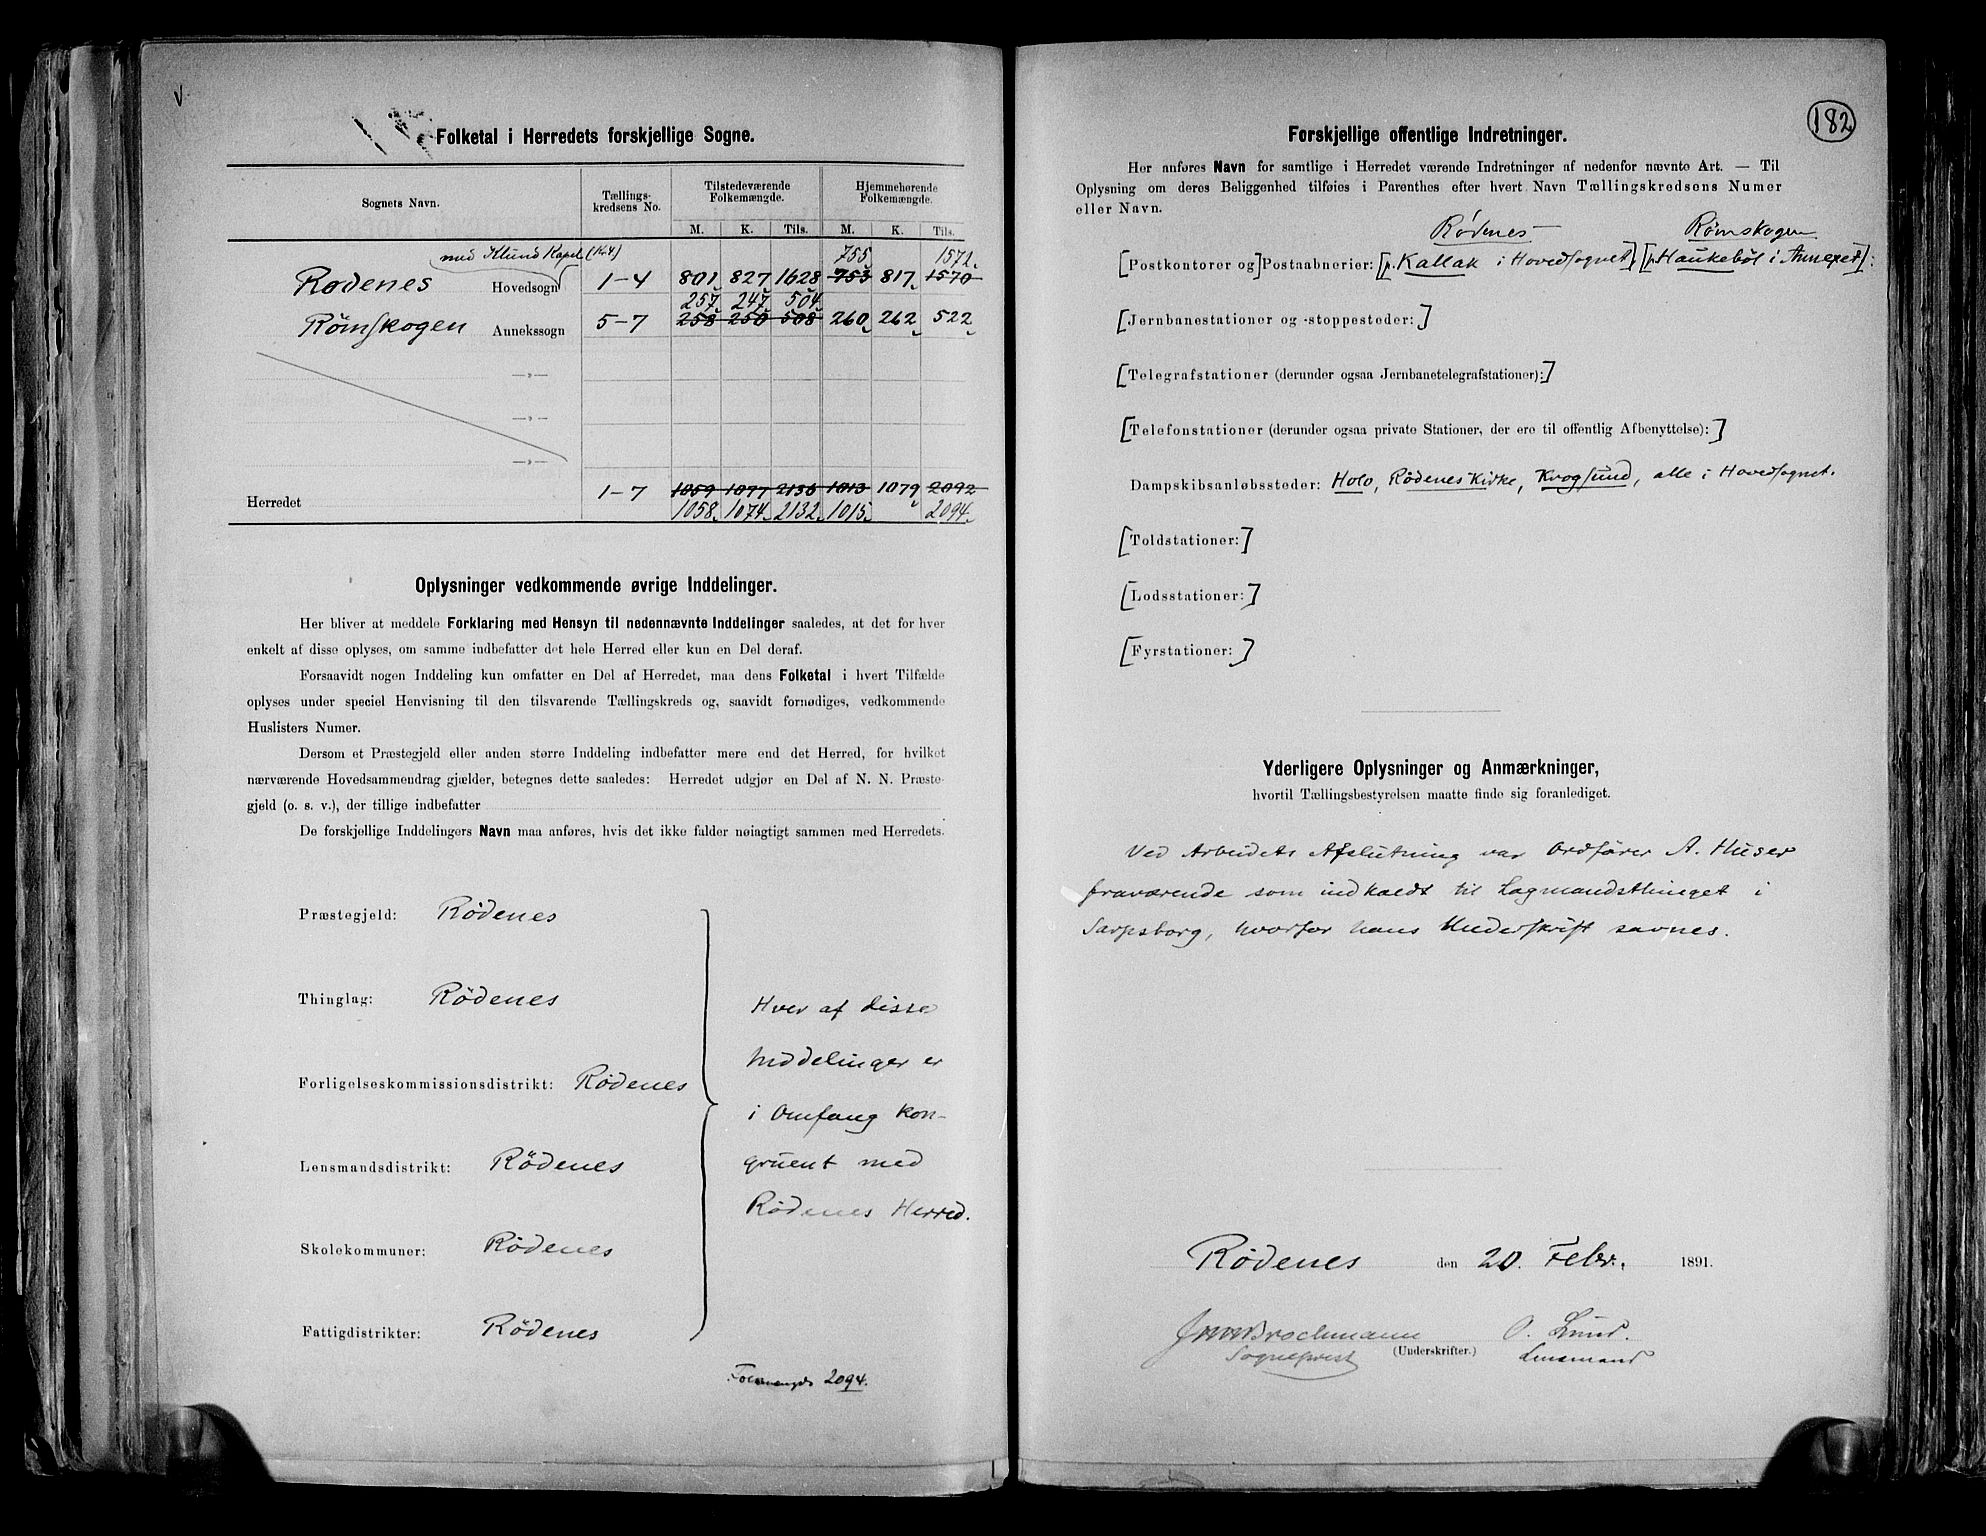 Folketal i Herredets forskjellige Sogne.
Sognets Navn. Tællings-kredsens No. Tilstedeværende Folkemængde. Hjemmehørende Folkemængde.
M. K. Tils. M. K. Tils.
med Klund Kapel (Kr. 4) 755 1572
Rødenes Hovedsogn 1-4 801 827 1628 753 817 1570
257 247 504
Rømskogen Annekssogn 5-7 258 250 508 260 262 522
—„—
—„—
—„—
Herredet 1-7 1059 1077 2136 1013 1079 2092
1058 1074 2132 1015 2094
Oplysninger vedkommende øvrige Inddelinger.
Her bliver at meddele Forklaring med Hensyn til nedennævnte Inddelinger saaledes, at det for hver
enkelt af disse oplyses, om samme indbefatter det hele Herred eller kun en Del deraf.
Forsaavidt nogen Inddeling kun omfatter en Del af Herredet, maa dens Folketal i hvert Tilfælde
oplyses under speciel Henvisning til den tilsvarende Tællingskreds og, saavidt fornødiges, vedkommende
Huslisters Numer.
Dersom et Præstegjeld eller anden større Inddeling indbefatter mere end det Herred, for hvilket
nærværende Hovedsammendrag gjælder, betegnes dette saaledes: Herredet udgjør en Del af N. N. Præste-
gjeld (o. s. v.), der tillige indbefatter
De forskjellige Inddelingers Navn maa anføres, hvis det ikke falder nøiagtigt sammen med Herredets.
Præstegjeld: Rødenes
Thinglag: Rødenes
Forligelseskommissionsdistrikt: Rødenes
Lensmandsdistrikt: Rødenes
Skolekommuner: Rødenes
Fattigdistrikter: Rødenes
Hver af disse
Inddelinger er
i Omfang kon-
gruent med
Rødenes Herred.
Folkemængde 2094.
182
Forskjellige offentlige Indretninger.
Her anføres Navn for samtlige i Herredet værende Indretninger af nedenfor nævnte Art. — Til
Oplysning om deres Beliggenhed tilføies i Parenthes efter hvert Navn Tællingskredsens Numer
eller Navn.
Rødenes Rømskogen
[Postkontorer og] Postaabnerier: [p. Kallak i Hovedsognet], [p. Haukebøl i Annexet].
[Jernbanestationer og -stoppesteder:]
[Telegrafstationer (derunder ogsaa Jernbanetelegrafstationer):]
[Telefonstationer (derunder ogsaa private Stationer, der ere til offentlig Afbenyttelse):]
Dampskibsanløbssteder: Holo, Rødenes Kirke, Krogsund, alle i Hovedsognet.
[Toldstationer:]
[Lodsstationer:]
[Fyrstationer:]
Yderligere Oplysninger og Anmærkninger,
hvortil Tællingsbestyrelsen maatte finde sig foranlediget.
Ved Arbeidets Afslutning var Ordfører A. Huser
fraværende som indkaldt til Lagmandsthinget i
Sarpsborg, hvorfor hans Underskrift savnes.
Rødenes den 20. Febr. 1891.
Brochmann O. Lund.
Sogneprest (Underskrifter.) Lensmand